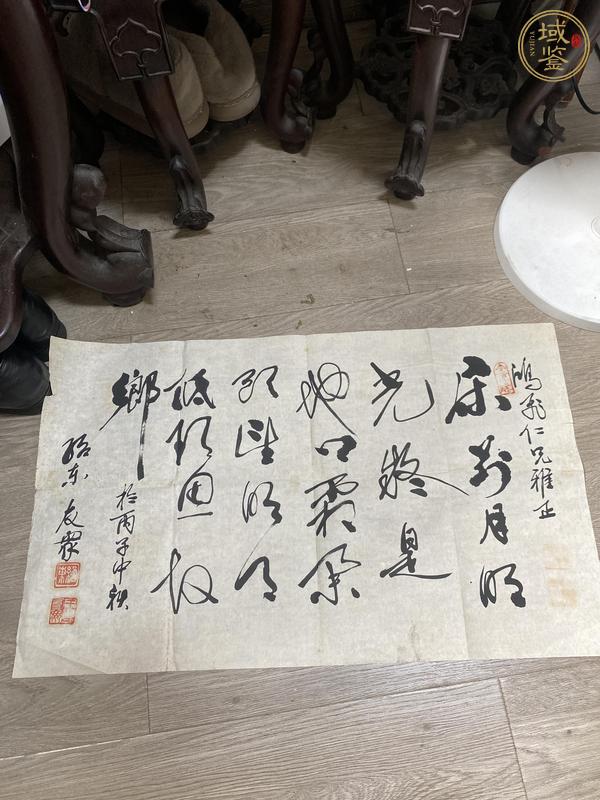 鴻飛仁兄雅正
床前月明
光疑是
地上霜举
头望明月
低头思故
鄉 於丙子中秋
东友
域鉴
YUJIAN